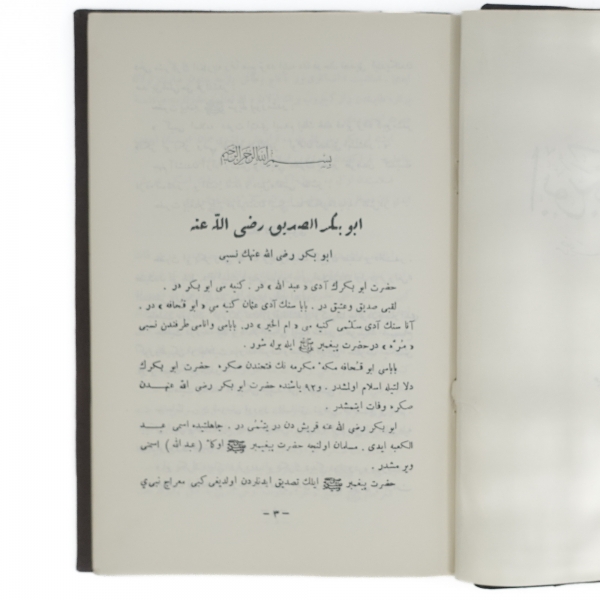 بسم الله الرحمن الرحيم
ابو بكر الصديق رضى الله عنه
ابو بكر رضى الله عنهك نسبى
حضرت ابو بكرك آدى « عبد الله » در . كنيه سى ابو بكر در .
لقبى صديق وعتيق در . بابا سنك آدى عثمان كنيه سى « ابو قحافه » در .
آنا سنك آدى سلمى كنيه سى « ام الخير » در . بابامى وانامى طرفندن نسبى
« مره » در حضرت پيغمبر ﷺ ايله بوله شور .
بابامى ابو قحافه مكه مكرمه نك فتحندن صكره حضرت ابو بكرك
دلا لتيله اسلام اولشدر . و٩٣ ياشنده حضرت ابو بكر رضى الله عنهدن
صكره وفات ايتمشدر .
ابو بكر رضى الله عنه قريش دن در يتمنى در . جاهليتده اسمى عبد
الكعبه ايدى . مسلمان اولنجه حضرت پيغمبر ﷺ اوكا ( عبد الله ) اسمنى
وير مشدر .
حضرت پيغمبر ﷺ ايلك تصديق ايدنلردن اولديغى كبى معراج نبوي
– ٣ –